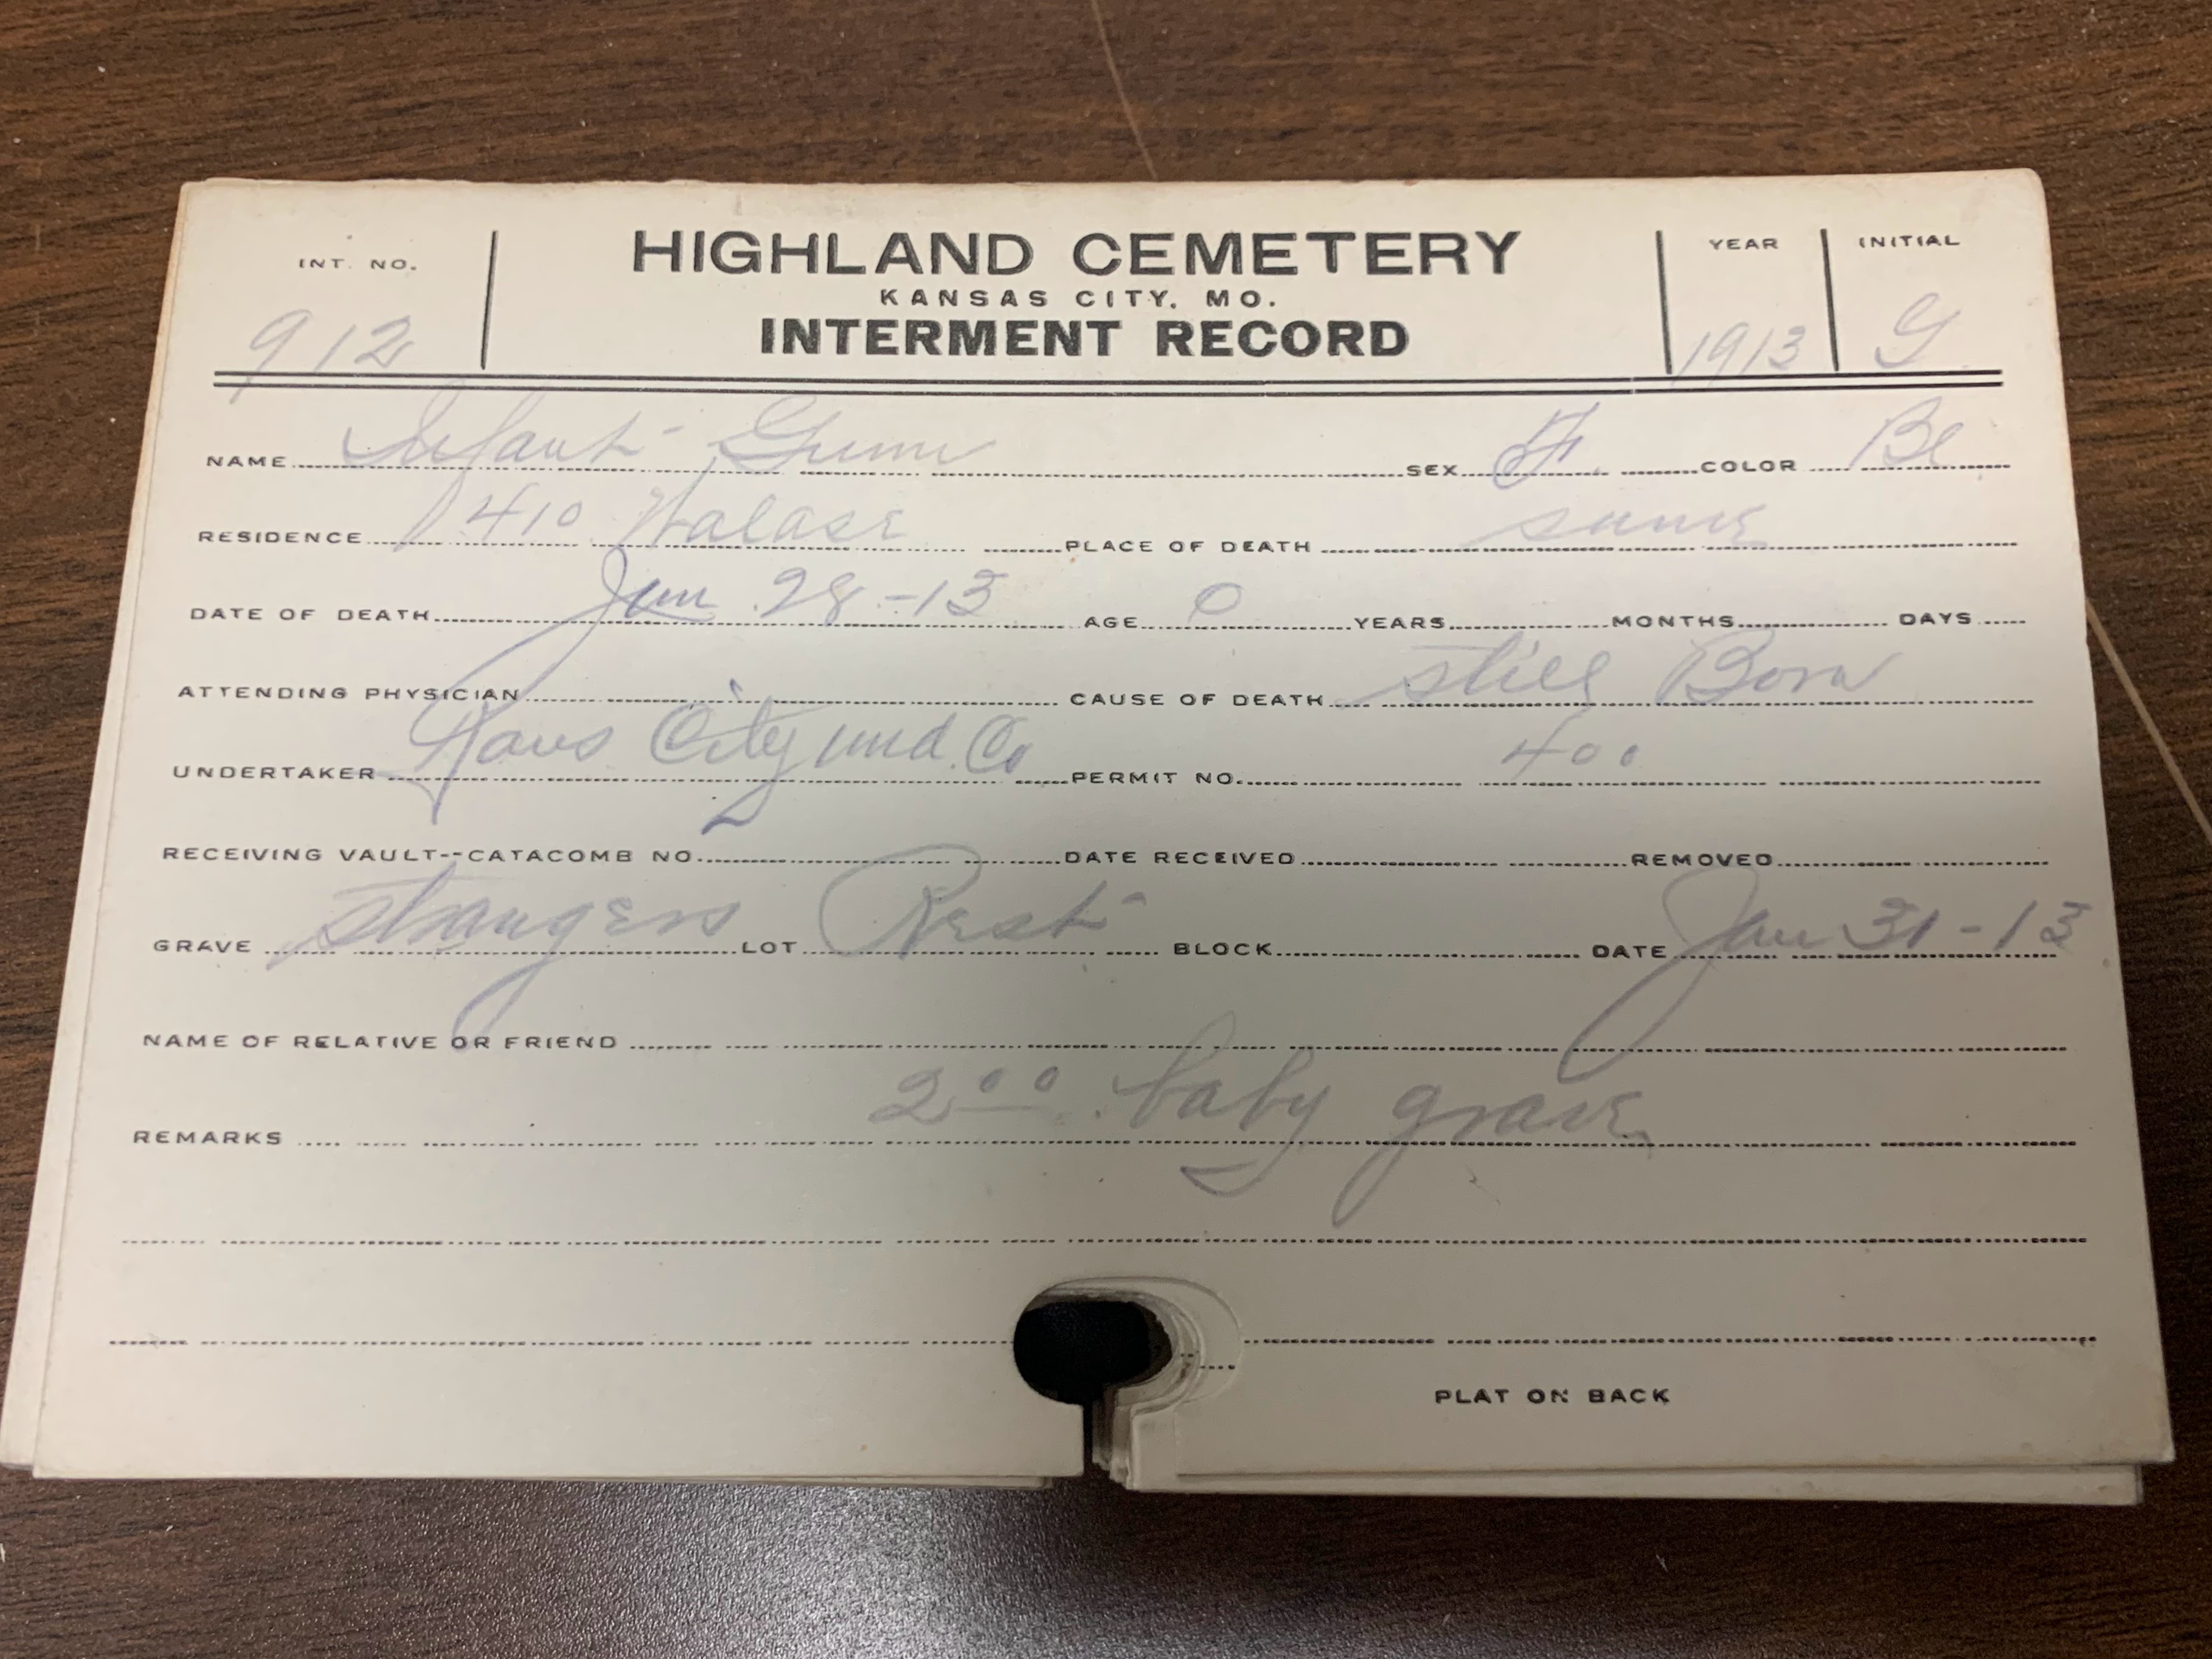 INT. NO. HIGHLAND CEMETERY YEAR INITIAL
KANSAS CITY, MO.
912 INTERMENT RECORD 1913 G
NAME Infant Gunn SEX F. COLOR Bl
RESIDENCE 1410 Walase PLACE OF DEATH same
DATE OF DEATH Jan 28-13 AGE 0 YEARS MONTHS DAYS
ATTENDING PHYSICIAN CAUSE OF DEATH still Born
UNDERTAKER Kans City und. Co PERMIT NO. 400
RECEIVING VAULT--CATACOMB NO. DATE RECEIVED REMOVED
GRAVE strangers LOT Rest BLOCK DATE Jan 31-13
NAME OF RELATIVE OR FRIEND
REMARKS 2 00 baby grave
PLAT ON BACK